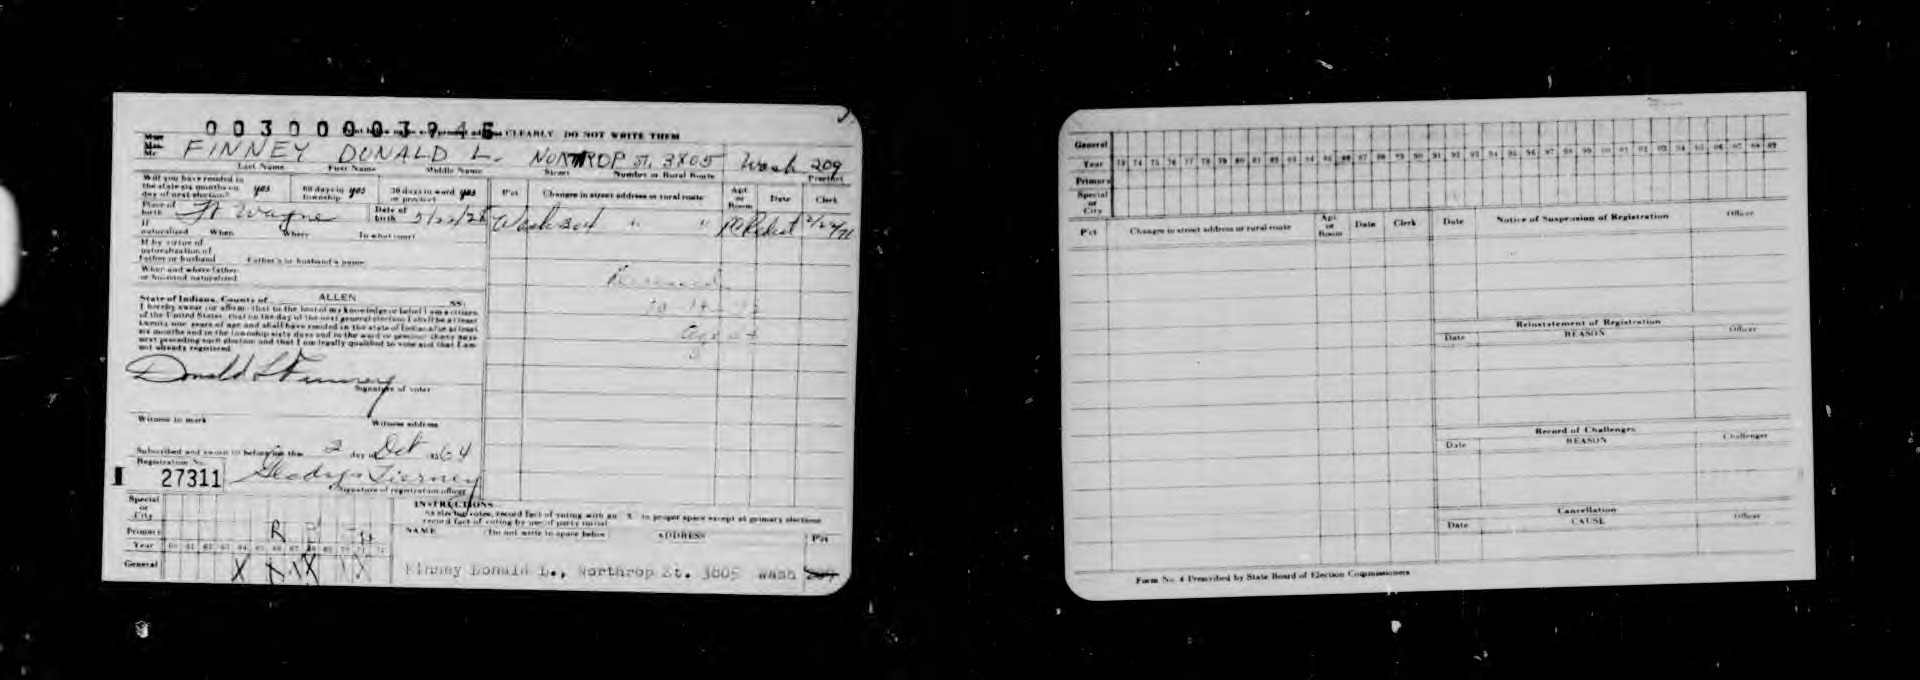 CLEARLY DO NOT WRITE THEM
FINNEY DONALD L. NORTHROP ST. 3805 Wash 209
Last Name First Name Middle Name Street Number or Rural Route Precinct
Will you have resided in
the state six months on yes 60 days in yes 30 days in ward yes
day of next election? township or precinct
P'ct Changes in street address or rural route Apt. or Room Date Clerk
Place of birth Ft Wayne Date of birth
Wash 304 " "
If naturalized When Where In what court
If by virtue of
naturalization of
father or husband Father's or husband's name
When and where father
or husband naturalized
State of Indiana, County of ALLEN SS:
I hereby swear (or affirm) that to the best of my knowledge or belief I am a citizen
of the United States, that on the day of the next general election I shall be at least
twenty-one years of age and shall have resided in the state of Indiana for at least
six months and in the township sixty days and in the ward or precinct thirty days
next preceding such election and that I am legally qualified to vote and that I am
not already registered.
Donald L Finney
Signature of voter
Witness to mark Witness address
Subscribed and sworn to before me this 2 day of Oct 1964
Registration No.
27311 Gladys Tierney
Signature of registration officer
INSTRUCTIONS
As elector votes, record fact of voting with an "X" in proper space except at primary elections
record fact of voting by use of party initial
Special or City
Primary R
Year 60 61 62 63 64 65 66 67 68 69 70 71 72
General X X X
NAME (Do not write in space below) ADDRESS P'ct
Finney Donald L., Northrop St. 3805 Wash 209
General
Year 73 74 75 76 77 78 79 80 81 82 83 84 85 86 87 88 89 90 91 92 93 94 95 96 97 98 99
Primary
Special or City
P'ct Changes in street address or rural route Apt. or Room Date Clerk
Date Notice of Suspension of Registration Officer
Reinstatement of Registration
Date REASON Officer
Record of Challenges
Date REASON Challenger
Cancellation
Date CAUSE Officer
Form No. 4 Prescribed by State Board of Election Commissioners